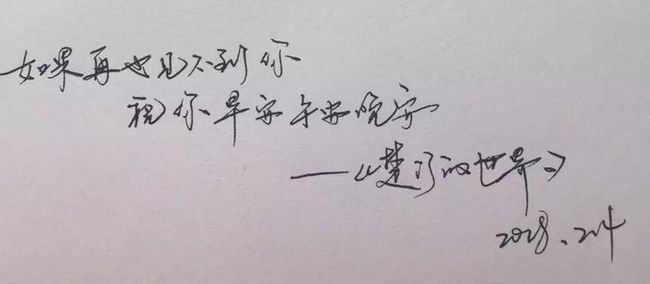 如果再也见不到你
祝你早安午安晚安
——《楚门的世界》
2028.2.4